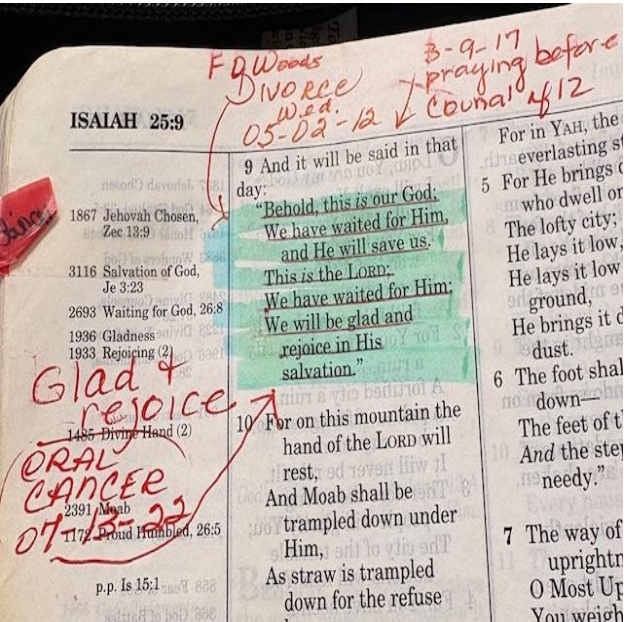 F D Woods
DIVORCE
Wed.
05-02-12
3-9-17
praying before
Council of 12
ISAIAH 25:9
1867 Jehovah Chosen,
Zec 13:9
3116 Salvation of God,
Je 3:23
2693 Waiting for God, 26:8
1936 Gladness
1933 Rejoicing (2)
Glad +
rejoice
1485 Divine Hand (2)
ORAL
CANCER
2391 Moab
07-13-22
1172 Proud Humbled, 26:5
p.p. Is 15:1
9 And it will be said in that
day:
“Behold, this is our God;
We have waited for Him,
and He will save us.
This is the LORD;
We have waited for Him;
We will be glad and
rejoice in His
salvation.”
10 For on this mountain the
hand of the LORD will
rest,
And Moab shall be
trampled down under
Him,
As straw is trampled
down for the refuse
For in YAH, the
everlasting
5 For He brings
who dwell
The lofty city;
He lays it low,
He lays it low
ground,
He brings it
dust.
6 The foot
down—
The feet of
And the
needy.”
7 The way of
O Most
You